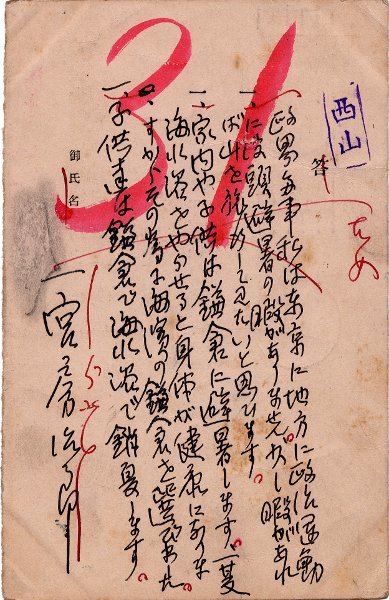 西山
答
政界多事 私は東京に地方に政治運動
一、に没頭避暑の暇がありません。が少し暇があれ
ば山を旅行して見たいと思ひます。
一、家内や子供は鎌倉に避暑します。一夏
海水浴をやらせると身体が健康になりま
すから その為め海濱の鎌倉を選びました。
一、子供達は鎌倉で海水浴で銷夏します。
御氏名
一宮房治郎
31